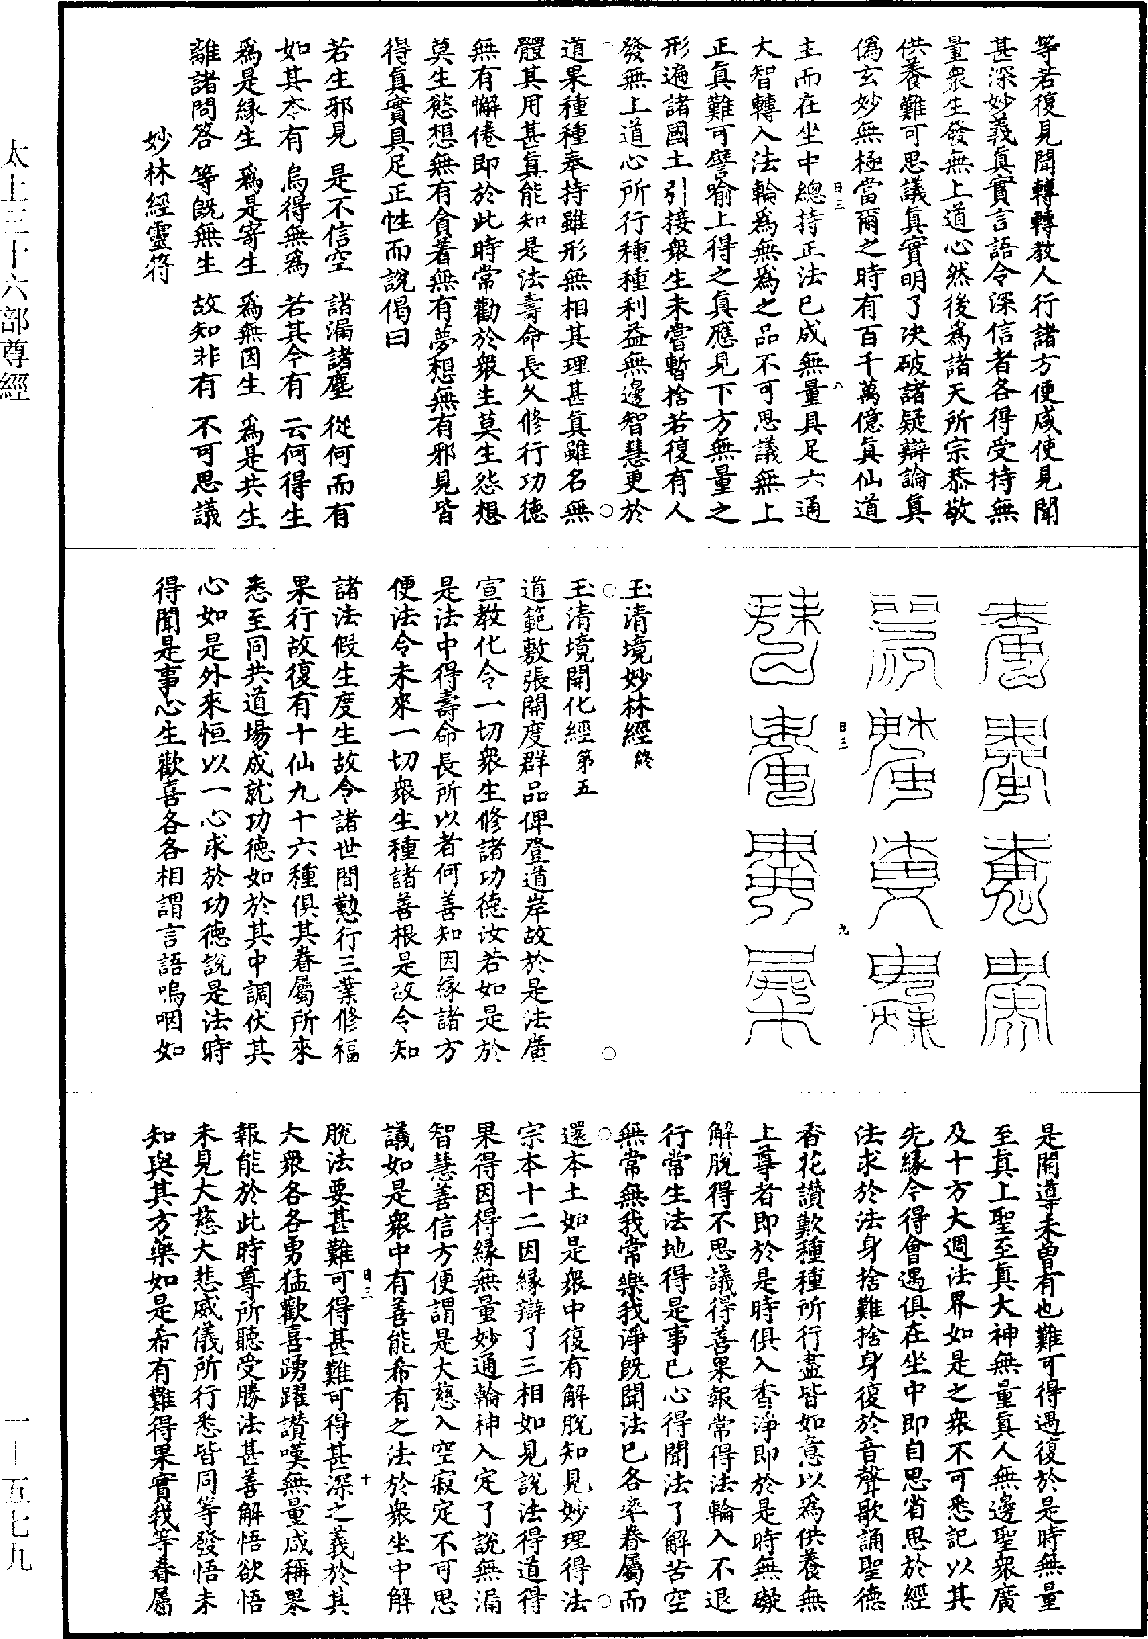 太上三十六部尊經
一—五七九
等若復見聞轉轉教人行諸方便咸使見聞
甚深妙義真實言語令深信者各得受持無
量衆生發無上道心然後爲諸天所宗恭敬
供養難可思議真實明了决破諸疑辯論真
僞玄妙無極當爾之時有百千萬億真仙道
主而在坐中總持正法已成無量具足六通
大智轉入法輪爲無爲之品不可思議無上
正真難可譬喻上得之真應見下方無量之
形遍諸國土引接衆生未嘗暫捨若復有人
發無上道心所行種種利益無邊智慧更於
道果種種奉持雖形無相其理甚真雖名無
體其用甚真能知是法壽命長久修行功德
無有懈倦即於此時常勸於衆生莫生怨想
莫生慾想無有貪著無有夢想無有邪見皆
得真實具足正性而說偈曰
若生邪見 是不信空 諸漏諸塵 從何而有
如其本有 烏得無爲 若其今有 云何得生
爲是緣生 爲是寄生 爲無因生 爲是共生
離諸問答 等既無生 故知非有 不可思議
妙林經靈符
玉清境妙林經終
玉清境開化經第五
道範敷張開度群品俾登道岸故於是法廣
宣教化令一切衆生修諸功德汝若如是於
是法中得壽命長所以者何善知因緣諸方
便法令未來一切衆生種諸善根是故令知
諸法假生度生故令諸世間懃行三業修福
果行故復有十仙九十六種俱其眷屬所來
悉至同共道場成就功德如於其中調伏其
心如是外來恒以一心求於功德說是法時
得聞是事心生歡喜各各相謂言語嗚咽如
是開導未曾有也難可得遇復於是時無量
至真上聖至真大神無量真人無邊聖衆廣
及十方大週法界如是之衆不可悉記以其
先緣令得會遇俱在坐中即自思省思於經
法求於法身捨難捨身復於音聲歌誦聖德
香花讚歎種種所行盡皆如意以爲供養無
上尊者即於是時俱入香淨即於是時無礙
解脫得不思議得善果報常得法輪入不退
行常生法地得是事已心得聞法了解苦空
無常無我常樂我淨既聞法已各率眷屬而
還本土如是衆中復有解脫知見妙理得法
宗本十二因緣辯了三相如見說法得道得
果得因得緣無量妙通輪神入定了說無漏
智慧善信方便謂是大慈入空寂定不可思
議如是衆中有善能希有之法於衆坐中解
脫法要甚難可得甚難可得甚深之義於其
大衆各各勇猛歡喜踴躍讚嘆無量咸稱果
報能於此時尊所聽受勝法甚善解悟欲悟
未見大慈大悲威儀所行悉皆同等發悟未
知與其方藥如是希有難得果實我等眷屬